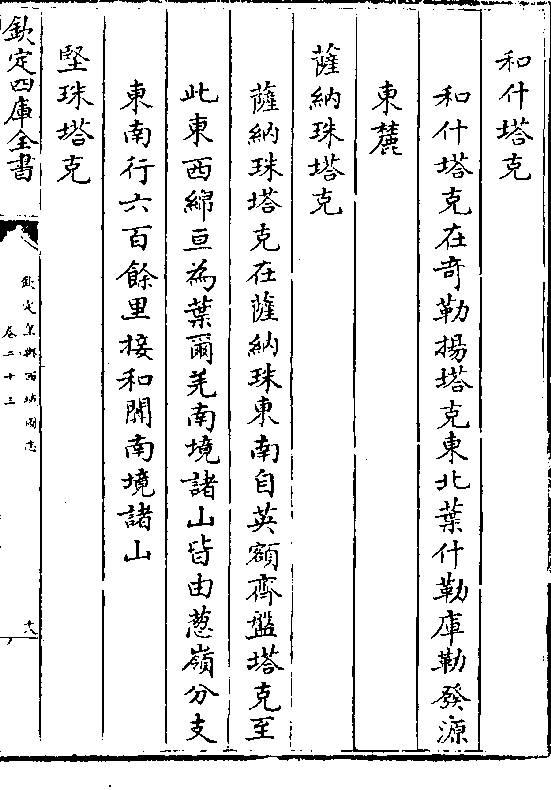 和什塔克
和什塔克在奇勒揚塔克東北葉什勒庫勒發源
東麓
薩納珠塔克
薩納珠塔克在薩納珠東南自英額齊盤塔克至
此東西綿亘為葉爾羌南境諸山皆由葱嶺分支
東南行六百餘里接和闐南境諸山
堅珠塔克
欽定四庫全書
欽定皇輿西域圖志
卷二十三
十八